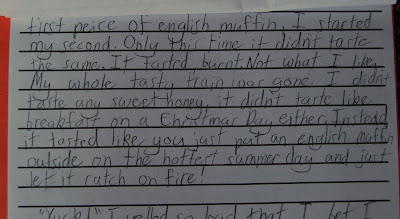 first peice of english muffin, I started
my second. Only this time it didn't taste
the same. It tasted burnt. Not what I like.
My whole tasty train was gone. I didn't
taste any sweet honey, it didn't taste like
breakfast on a Christmas Day either. Instead
it tasted like you just put an english muffin
outside on the hottest summer day and just
let it catch on fire!
I yelled so loud that I bet I